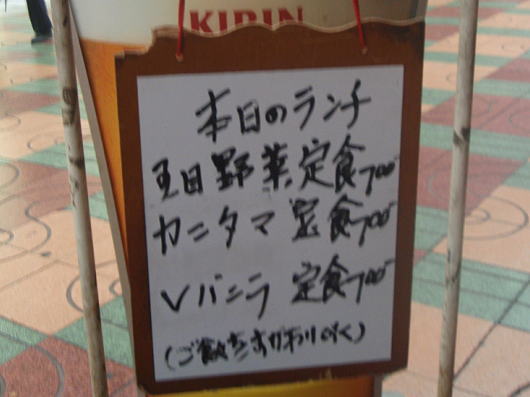 KIRIN
本日のランチ
野菜定食700
カニタマ定食700
レバニラ定食700